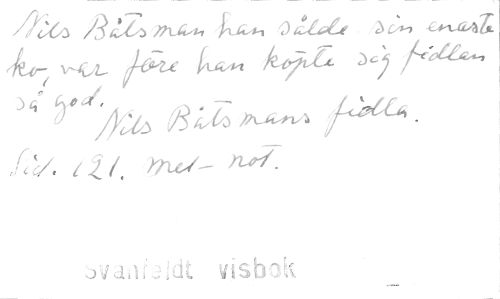 Nils Båtsman han sålde sin enaste
ko, var före han köpte sig fidlan
så god.
Nils Båtsmans fidla.
Sid. 121. Met-not.
Svanfeldt visbok